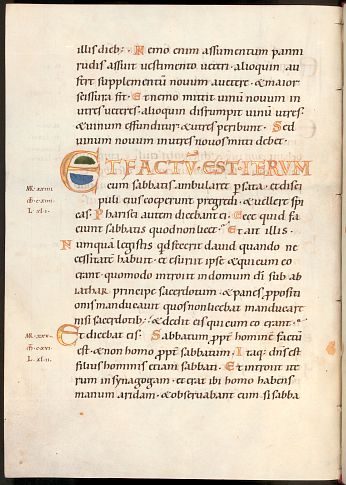 illis dieb;. Nemo enim assumentum panni
rudis assuit vestimento veteri. alioquin au
fert supplementū novum a veteri. & maior
scissura fit. Et nemo mittit vinū novum in
utres veteres. alioquin disrumpit vinū utres.
& vinum effunditur. & utres peribunt. Sed
vinum novum in utres novos mitti debet.
ET FACTŪ EST ITERUM
cum sabbatis ambularet p sata. et disci
puli eius coeperunt pregredi. & vellere spi
cas. Pharisei autem dicebant ei. Ecce quid fa
ciunt sabbatis quod non licet. Et ait illis.
Numquā legistis qd fecerit david quando ne
cessitatē habuit. et esuriit ipse & qui cum eo
erant. quomodo introiit in domum di sub ab
iathar principe sacerdotum. & panes ppositi
onis manducavit quos non licebat manducare
nisi sacerdotib;. & dedit eis qui cum eo erant.
Et dicebat eis. Sabbatum ppt hominē factū
est. & non homo ppt sabbatum. Itaq; dns est
filius hominis etiam sabbati. Et introiit ite
rum in synagogam. et erat ibi homo habens
manum aridam. & observabant eum si sabba